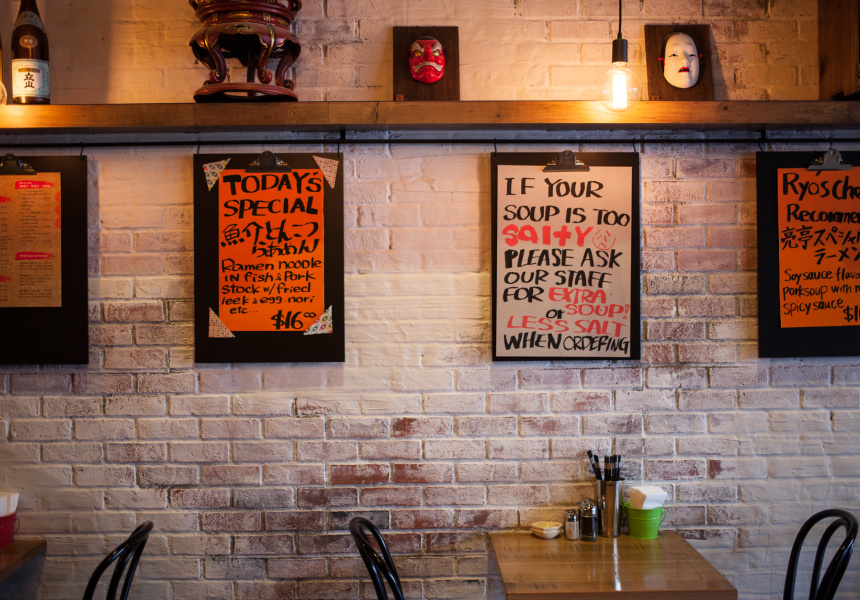 立山
TODAY'S
SPECIAL
魚介とんこつ
らあめん
Ramen noodle
IN fish & Pork
Stock w/ fried
leek & egg. nori
etc...
$16.00
IF YOUR
SOUP IS TOO
SAltY
PLEASE ASK
OUR STAFF
FOR EXTRA
SOUP!!
or
LESS SALT
WHEN ORDERING
Ryo's Che
Recomme
亮亭スペシャ
ラーメン
Soy sauce flavo
pork soup with
spicy sauce